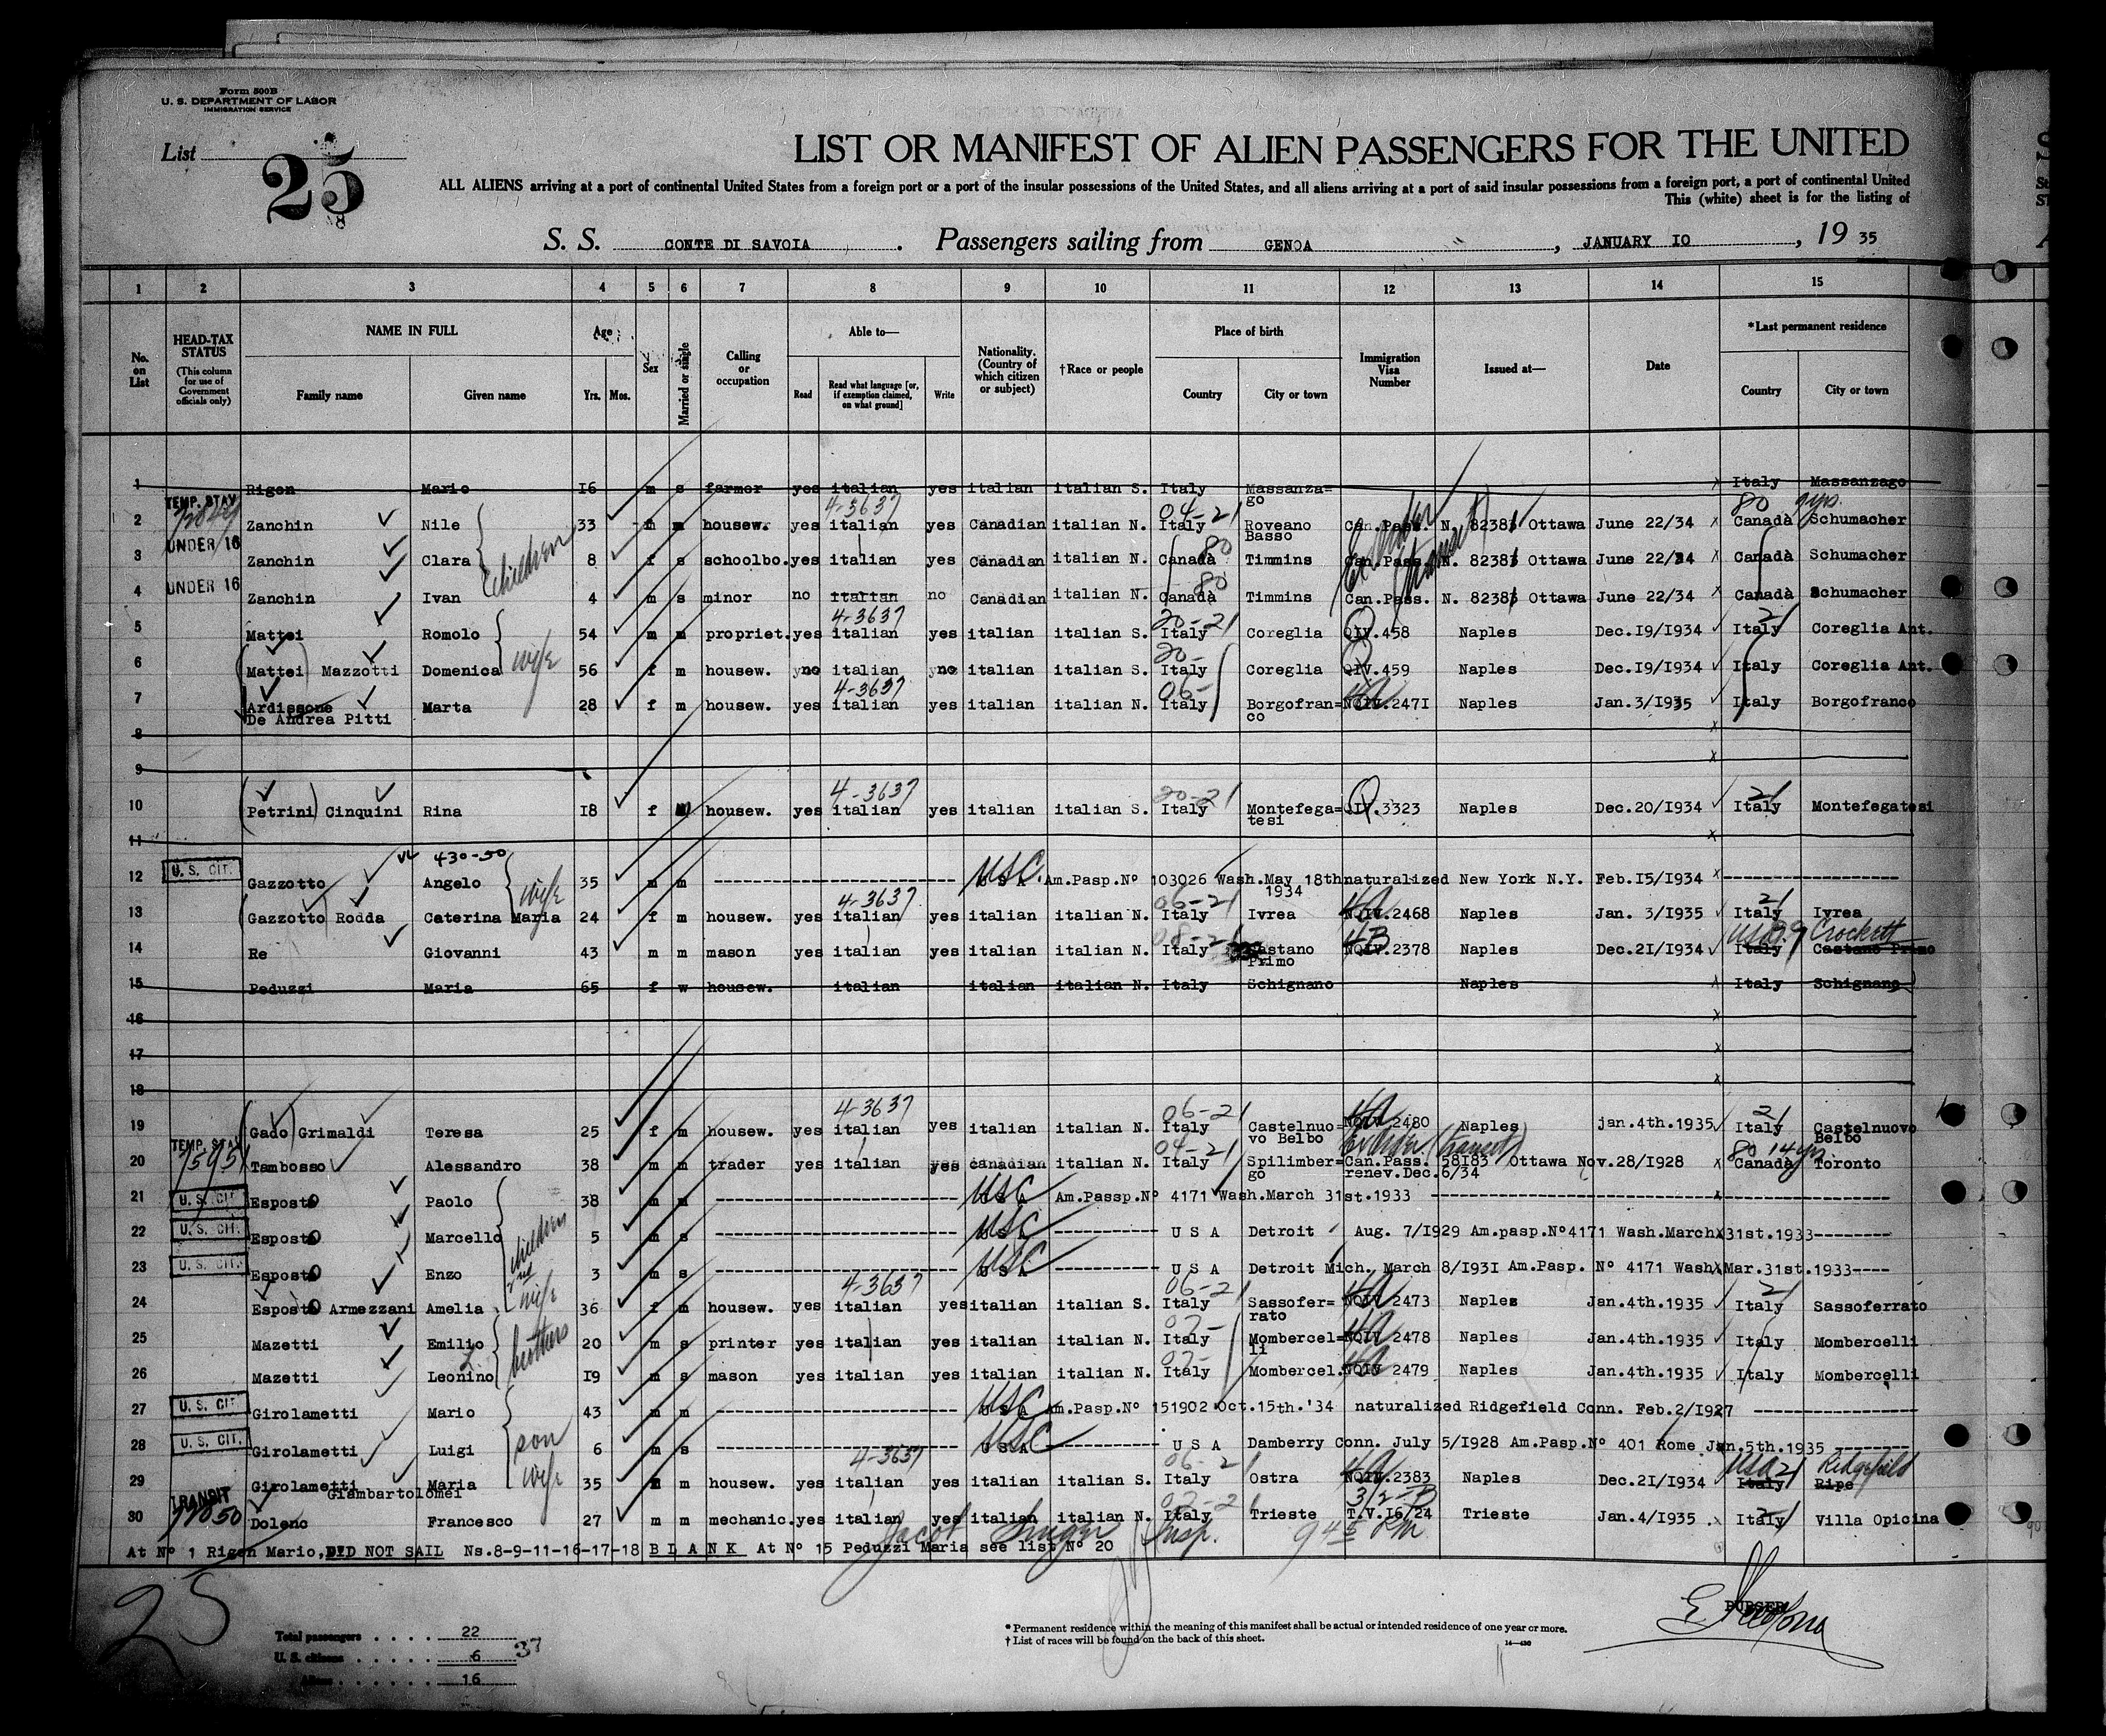 Form 500B
U. S. DEPARTMENT OF LABOR
IMMIGRATION SERVICE
List 25
LIST OR MANIFEST OF ALIEN PASSENGERS FOR THE UNITED
ALL ALIENS arriving at a port of continental United States from a foreign port or a port of the insular possessions of the United States, and all aliens arriving at a port of said insular possessions from a foreign port, a port of continental United
This (white) sheet is for the listing of
S. S. CONTE DI SAVOIA. Passengers sailing from GENOA, JANUARY IO, 19 35
1 2 3 4 5 6 7 8 9 10 11 12 13 14 15
No. on List
HEAD-TAX STATUS (This column for use of Government officials only)
NAME IN FULL
Family name Given name
Age Yrs. Mos.
Sex
Married or single
Calling or occupation
Able to—
Read Read what language [or, if exemption claimed, on what ground] Write
Nationality. (Country of which citizen or subject)
†Race or people
Place of birth
Country City or town
Immigration Visa Number
Issued at—
Date
*Last permanent residence
Country City or town
1 Rigon Mario I6 m s farmer yes italian yes italian italian S. Italy Massanza=go Italy Massanzago
TEMP. STAY 4-3637 04-21 80 9yrs.
2 Zanchin Nile 33 m housew. yes italian yes Canadian italian N. Italy Roveano Basso Can.Pass. N. 82383 Ottawa June 22/34 Canadà Schumacher
UNDER 16 children 80
3 Zanchin Clara 8 f s schoolbo. yes italian yes Canadian italian N. Canadà Timmins Can.Pass. N. 82383 Ottawa June 22/34 Canadà Schumacher
UNDER 16 80
4 Zanchin Ivan 4 m s minor no italian no Canadian italian N. Canadà Timmins Can.Pass. N. 82383 Ottawa June 22/34 Canadà Schumacher
4-3637 20-21 21
5 Mattei Romolo 54 m m propriet. yes italian yes italian italian S. Italy Coreglia QIV.458 Naples Dec.I9/I934 Italy Coreglia Ant.
wife 20-
6 (Mattei) Mazzotti Domenica 56 f m housew. no italian no italian italian S. Italy Coreglia QIV.459 Naples Dec.I9/I934 Italy Coreglia Ant.
4-3637 06-
7 Ardissone De Andrea Pitti Marta 28 f m housew. yes italian yes italian italian N. Italy Borgofran=co NQIV.247I Naples Jan.3/I935 Italy Borgofranco
8
9
4-3637 20-21 21
10 (Petrini) Cinquini Rina I8 f housew. yes italian yes italian italian S. Italy Montefega=tesi QIV.3323 Naples Dec.20/I934 Italy Montefegatesi
11
430-50
12 U. S. CIT. Gazzotto Angelo 35 m m USC. U S A Am.Pasp.Nº 103026 Wash.May 18th 1934 naturalized New York N.Y. Feb.I5/I934
wife 4-3637 06-21 4A 21
13 (Gazzotto) Rodda Caterina Maria 24 f m housew. yes italian yes italian italian N. Italy Ivrea NQIV.2468 Naples Jan. 3/I935 Italy Ivrea
08-21 4B USA Crockett
14 Re Giovanni 43 m m mason yes italian yes italian italian N. Italy Castano Primo NQIV.2378 Naples Dec.2I/I934 Italy Castano Primo
15 Peduzzi Maria 65 f w housew. italian italian italian N. Italy Schignano Naples Italy Schignano
16
17
18
4-3637 06-21 4A 21
19 (Gado) Grimaldi Teresa 25 f m housew. yes italian yes italian italian N. Italy Castelnuo=vo Belbo NQIV 2480 Naples jan.4th.I935 Italy Castelnuovo Belbo
TEMP. STAY 04-21 (transit) 80 14yrs
20 Tambosso Alessandro 38 m m trader yes italian yes canadian italian N. Italy Spilimber=go Can.Pass. 58I83 renev.Dec.6/34 Ottawa Nov.28/I928 Canadà Toronto
21 U. S. CIT. Esposto Paolo 38 m m USC U S A Am.Passp.Nº 4171 Wash.March 31st.1933
22 U. S. CIT. Esposto Marcello 5 m s USC U S A U S A Detroit Aug. 7/I929 Am.pasp.Nº4171 Wash.March 31st.1933
children and wife
23 U. S. CIT. Esposto Enzo 3 m s USC U S A U S A Detroit Mich. March 8/I93I Am.Pasp. Nº 4171 Wash Mar.31st.1933
4-3637 06-21 4A 21
24 Esposto Armezzani Amelia 36 f m housew. yes italian yes italian italian S. Italy Sassofer=rato NQIV 2473 Naples Jan.4th.I935 Italy Sassoferrato
brothers 07- 4A
25 Mazetti Emilio 20 m s printer yes italian yes italian italian N. Italy Mombercel=li NQIV 2478 Naples Jan.4th.I935 Italy Mombercelli
07- 4A
26 Mazetti Leonino I9 m s mason yes italian yes italian italian N. Italy Mombercel. NQIV 2479 Naples Jan.4th.I935 Italy Mombercelli
27 U. S. CIT. Girolametti Mario 43 m m USC U S A Am.Pasp.Nº 151902 Oct.15th.'34 naturalized Ridgefield Conn. Feb.2/I927
son
28 U. S. CIT. Girolametti Luigi 6 m s USC U S A U S A Damberry Conn. July 5/I928 Am.Pasp.Nº 401 Rome Jan.5th.1935
wife 4-3637 06-21 4A USA 21 Ridgefield
29 Girolametti Giambartolomei Maria 35 m housew. yes italian yes italian italian S. Italy Ostra NQIV.2383 Naples Dec.2I/I934 Italy Ripe
TRANSIT
30 Dolenc Francesco 27 m m mechanic. yes italian yes italian italian N. Italy Trieste T.V.I6/24 Trieste Jan.4/I935 Italy Villa Opicina
Jacob Insp. 945 PM
At Nº 1 Rigon Mario, DID NOT SAIL Ns.8-9-11-16-17-18 BLANK At Nº 15 Peduzzi Maria see list Nº 20
25
PURSER
Total passengers 22
U. S. citizens 6 37
Aliens 16
* Permanent residence within the meaning of this manifest shall be actual or intended residence of one year or more.
† List of races will be found on the back of this sheet.